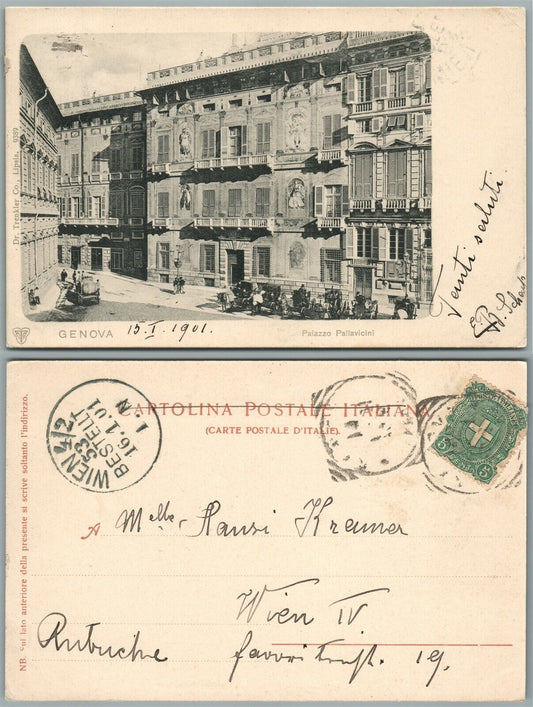 Dr. Trenkler Co., Lipsia.
Tanti saluti.
GENOVA 15.I.1901. Palazzo Pallavicini
CARTOLINA POSTALE ITALIANA
(CARTE POSTALE D'ITALIE).
WIEN 4/2
53
BESTELLT
16.1.01
A Melle Hansi Kramer
Wien IV
favoritenstr. 19.
NB. Sul lato anteriore della presente si scrive soltanto l'indirizzo.